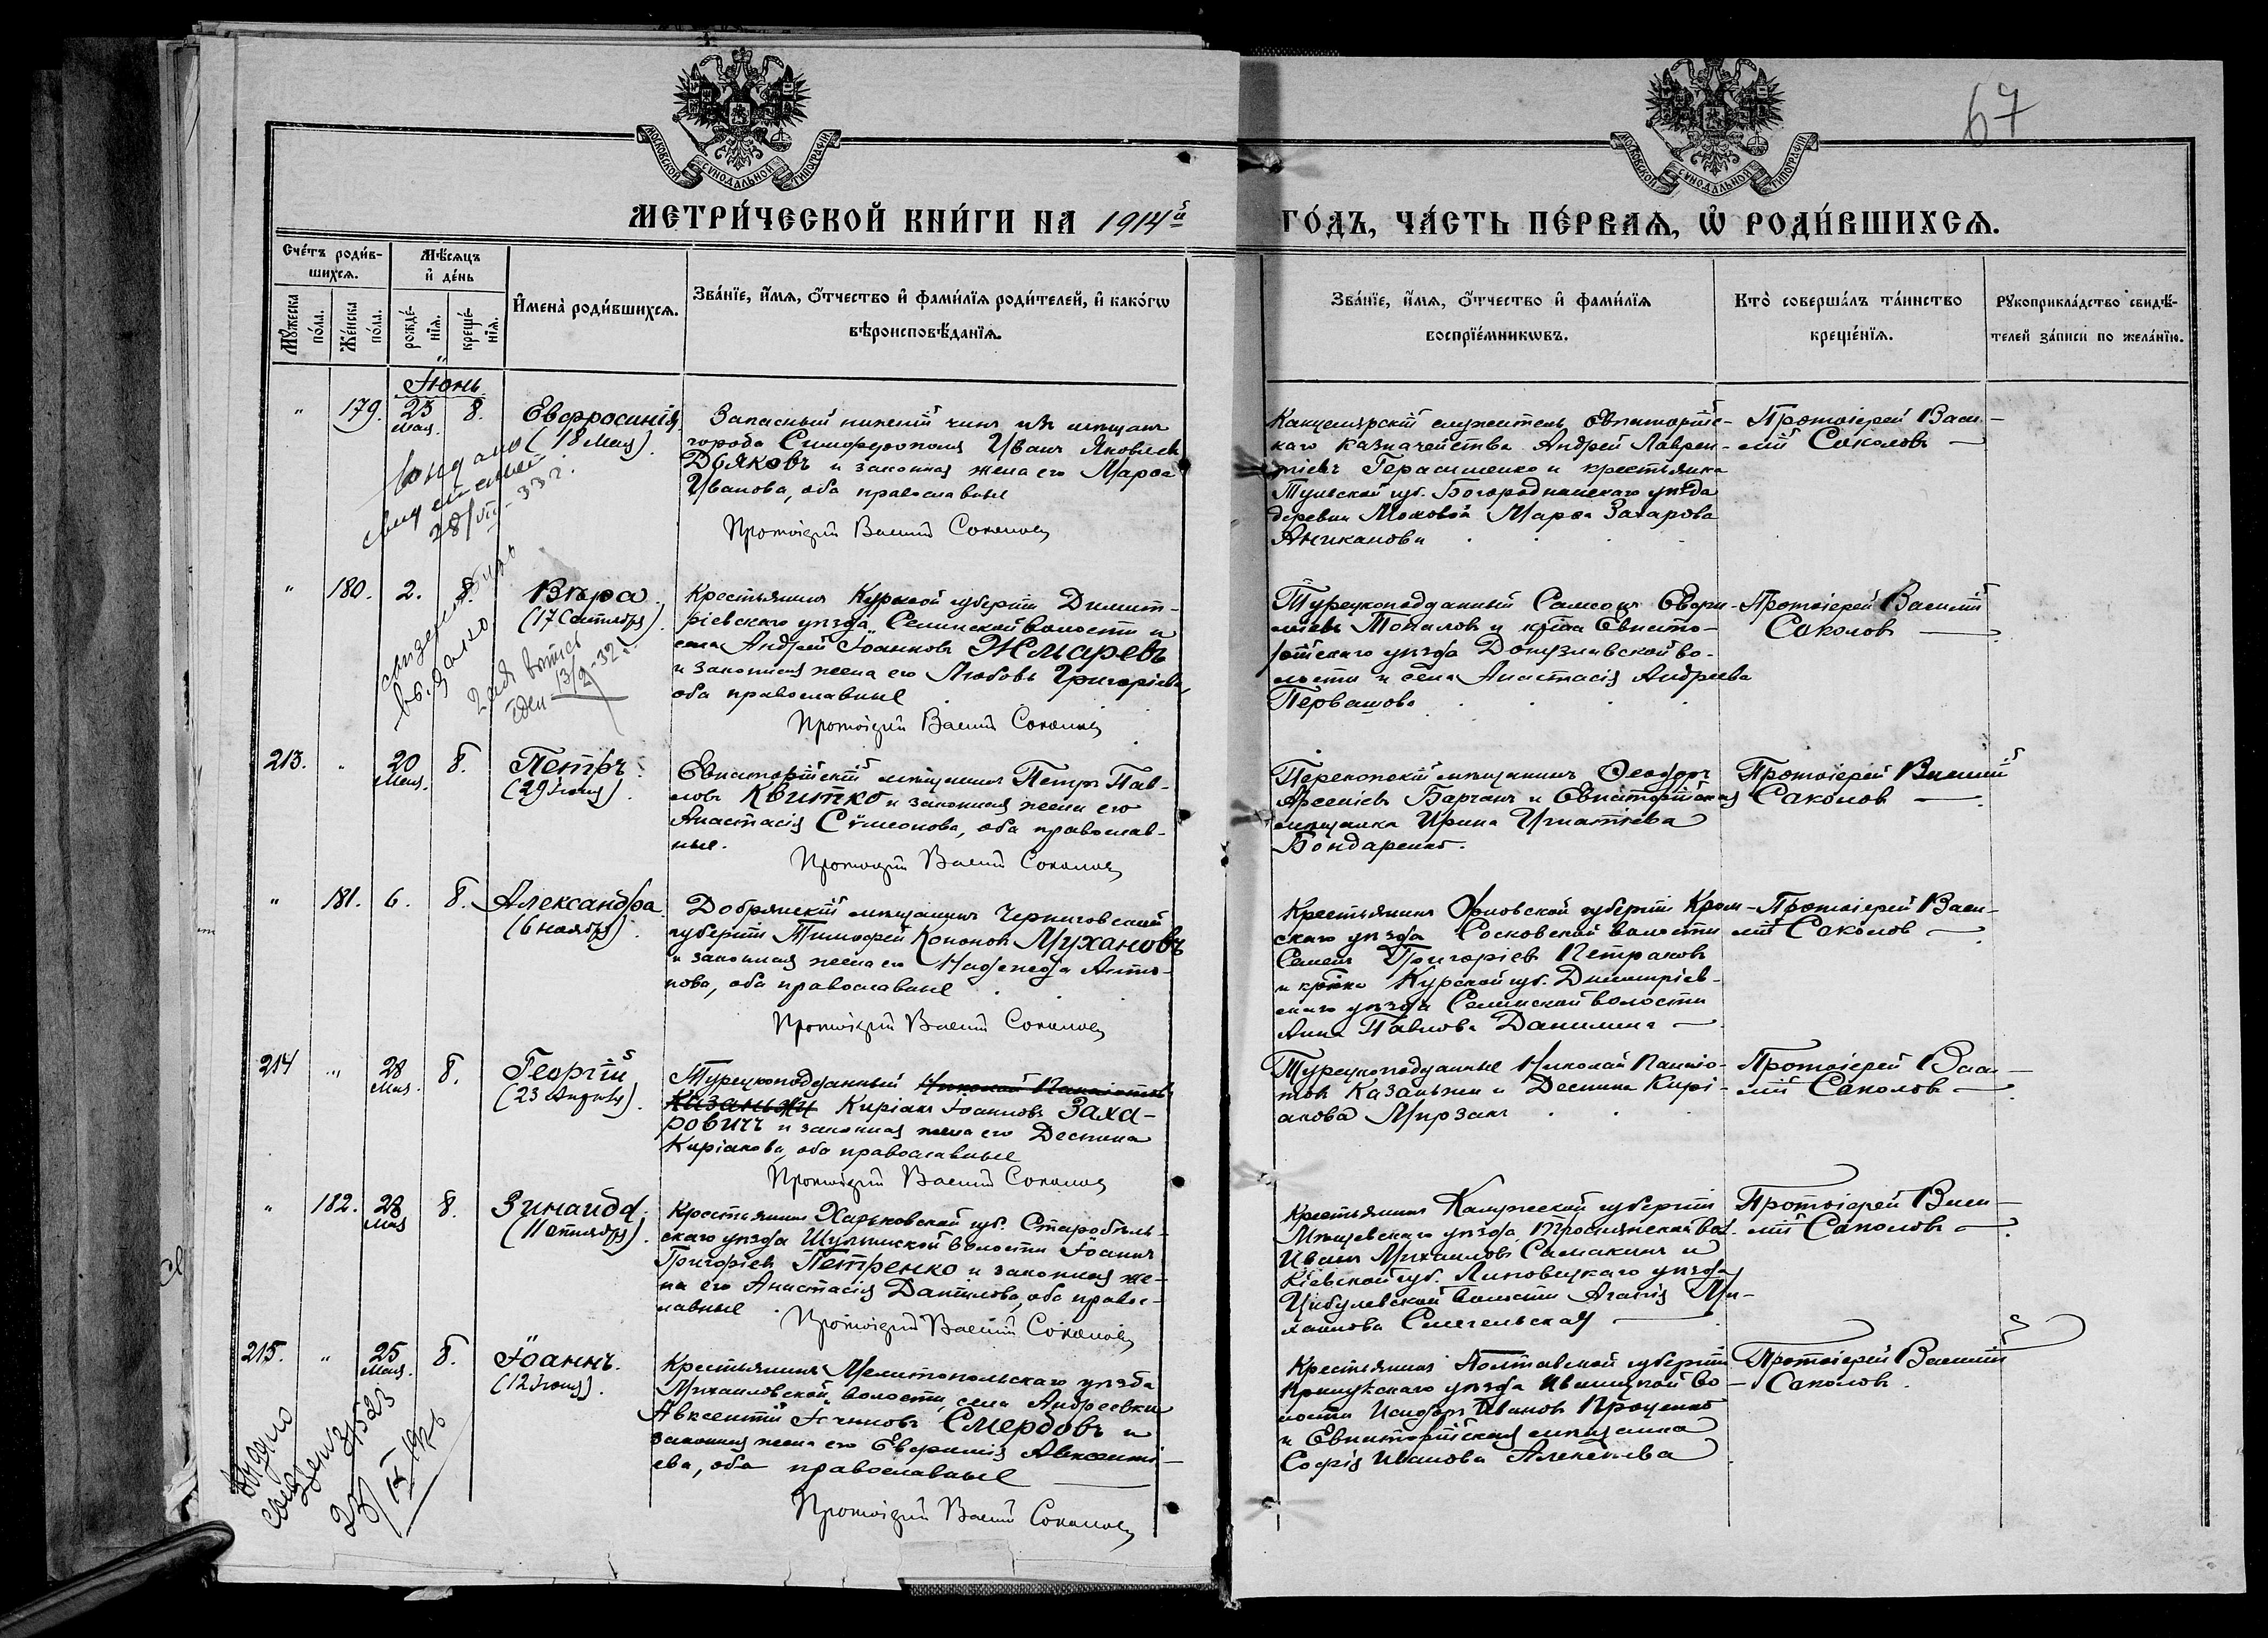 67
МОСКОВСКОЙ СѴНОДАЛЬНОЙ ТИПОГРАФІИ
МОСКОВСКОЙ СѴНОДАЛЬНОЙ ТИПОГРАФІИ
МЕТРИ́ЧЕСКОЙ КНИ́ГИ НА 1914й ГО́ДЪ, ЧА́СТЬ ПЕ́РВАѦ, Ѡ҆ РОДИ́ВШИХСѦ.
Сче́тъ роди́в-
шихсѧ.
Мꙋ́жеска
по́ла.
Же́нска
по́ла.
Мѣ́сѧцъ
и҆ де́нь
рожде́-
нїѧ.
креще́-
нїѧ.
И҆мена̀ роди́вшихсѧ.
Зва́нїе, и҆́мѧ, ѻ҆́тчество и҆ фами́лїѧ роди́телей, и҆ како́гѡ
вѣроисповѣ́данїѧ.
Зва́нїе, и҆́мѧ, ѻ҆́тчество и҆ фами́лїѧ
воспрїе́мникѡвъ.
Кто̀ соверша́лъ та́инство
креще́нїѧ.
Рꙋкоприкла́дство свидѣ́-
телей за́писи по жела́нїю.
Іюнь
" 179. 23 Мая. 8. Евфросинія
(18 Мая).
Запасный нижній чинъ изъ мѣщанъ
города Симферополя Иванъ Яковлевъ
Дьяковъ и законная жена его Марѳа
Иванова, оба православные
Протоіерей Василій Соколовъ
Канцелярскій служитель Евпаторійс-
каго Казначейства Андрей Лаврен-
тіевъ Герасименко и крестьянка
Тульской губ. Богородицкаго уѣзда
деревни Моховой Марѳа Захарова
Аниканова
Протоіерей Васи-
лій Соколовъ
28/VII-33 г.
" 180. 2. 8. Вѣра
(17 Сентября).
Крестьянинъ Курской губерніи Димит-
ріевскаго уѣзда Селинской волости и
села Андрей Іоанновъ Жмаревъ
и законная жена его Любовь Григоріева,
оба православные
Протоіерей Василій Соколовъ
Турецкоподданный Самсонъ
Топаловъ и кр-нка Евпато-
рійскаго уѣзда Донузлавской во-
лости и села Анастасія Андреева
Первашова
Протоіерей Василій
Соколовъ
13/2-32 г.
213. " 20 Мая. 8. Петръ
(29 Іюня).
Евпаторійскій мѣщанинъ Петръ Пав-
ловъ Квитко и законная жена его
Анастасія Сѵмеонова, оба православ-
ные.
Протоіерей Василій Соколовъ
Перекопскій мѣщанинъ Ѳеодоръ
Арсеніевъ Барчанъ и Евпаторійская
мѣщанка Ирина Игнатіева
Бондаренко.
Протоіерей Василій
Соколовъ
" 181. 6. 8. Александра
(6 ноября).
Добрянскій мѣщанинъ Черниговской
губерніи Тимоѳей Кононовъ Мухановъ
и законная жена его Надежда Анто-
нова, оба православные
Протоіерей Василій Соколовъ
Крестьянинъ Орловской губерніи Кром-
скаго уѣзда Сосковской волости
Семенъ Григоріевъ Петраковъ
и кр-нка Курской губ. Димитріев-
скаго уѣзда Селинской волости
Анна Павлова Данилина
Протоіерей Васи-
лій Соколовъ
214 " 28 Мая. 8. Георгій
(23 Апрѣля).
Турецкоподданный Николай Панаіотовъ
Казанжи Киріакъ Іоанновъ Заха-
ровичъ и законная жена его Деспина
Киріакова, оба православные
Протоіерей Василій Соколовъ
Турецкоподданные Николай Панаіо-
товъ Казанжи и Деспина Кирі-
акова Мирзакъ
Протоіерей Васи-
лій Соколовъ
" 182. 28 Мая 8. Зинаида.
(11 октября).
Крестьянинъ Харьковской губ. Старобѣль-
скаго уѣзда Шульгинской волости Іоаннъ
Григоріевъ Петренко и законная же-
на его Анастасія Даніилова, оба правос-
лавные
Протоіерей Василій Соколовъ
Крестьянинъ Калужской губерніи
Мещевскаго уѣзда вол.
Иванъ Михаиловъ Самакинъ и
Кіевской губ. Липовецкаго уѣзда
Цибулевской волости Агаѳія Ми-
хаилова
Протоіерей Васи-
лій Соколовъ
215. " 25 Мая. 8. Іоаннъ.
(12 Іюня).
Крестьянинъ Мелитопольскаго уѣзда
Михаиловской волости, села Андреевки
Авксентій Смердовъ и
законная жена его Евфимія Авксенті-
ева, оба православные
Протоіерей Василій Соколовъ
Крестьянинъ Полтавской губерніи
Прилукскаго уѣзда Иваницкой во-
лости Исидоръ Ивановъ Проценко
и Евпаторійская мѣщанка
Софія Иванова Алексѣева
Протоіерей Василій
Соколовъ.
Выдано